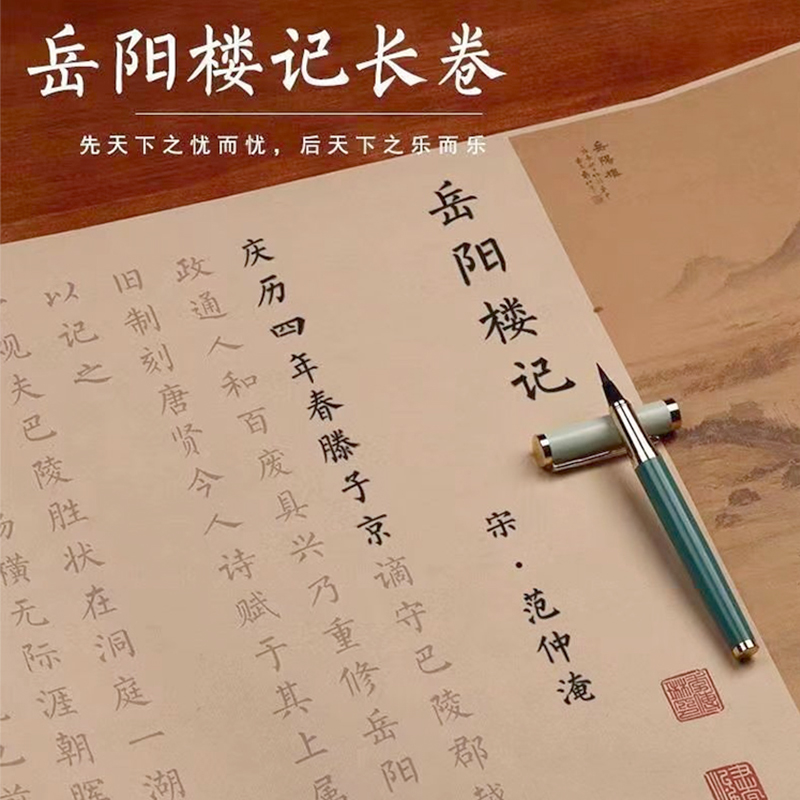 岳阳楼记长卷
先天下之忧而忧，后天下之乐而乐
岳陽樓
岳阳楼记
宋·范仲淹
庆历四年春滕子京谪守巴陵郡越
政通人和百废具兴乃重修岳阳
旧制刻唐贤今人诗赋于其上属
以记之
观夫巴陵胜状在洞庭一湖
汤横无际涯朝晖